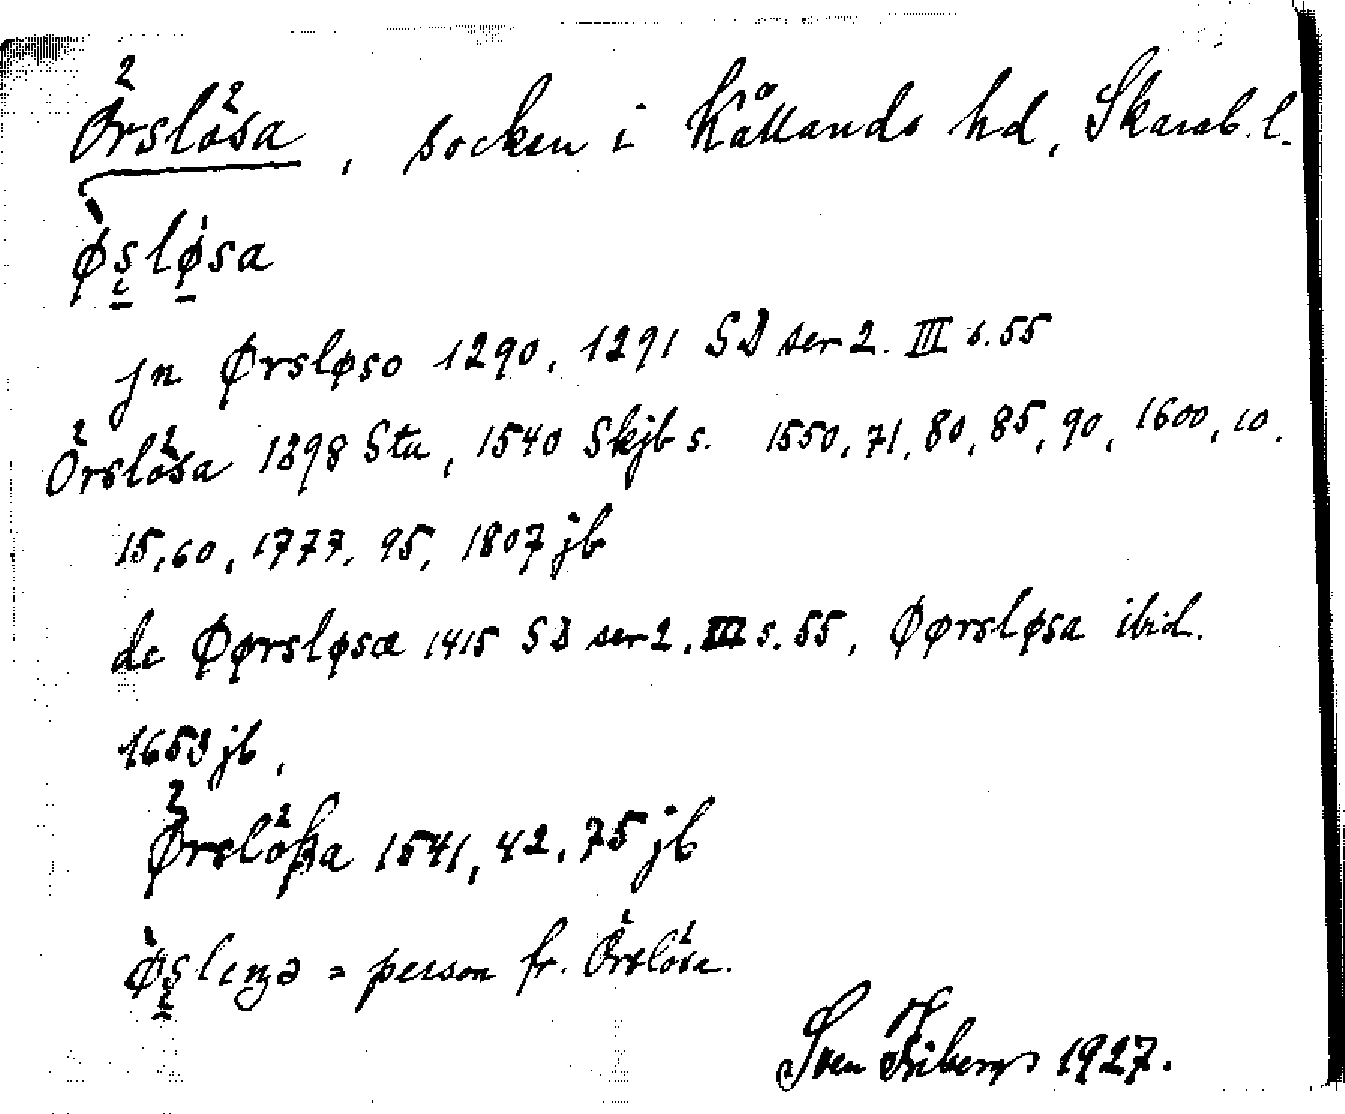 Örslösa, socken i Kållands hd, Skarab. l.
øsløsa
jn Ørsløso 1290, 1291 SD ser 2. III s. 55
Örslösa 1398 Sta, 1540 Skjb s. 1550, 71, 80, 85, 90, 1600, 10,
15, 60, 1777, 95, 1807 jb
de Øørsløsa 1415 SD ser 2. III s. 55, Øørsløsa ibid.
1653 jb,
Ørslößa 1541, 42, 75 jb
= person fr. Örslösa.
Sven Friberg 1927.